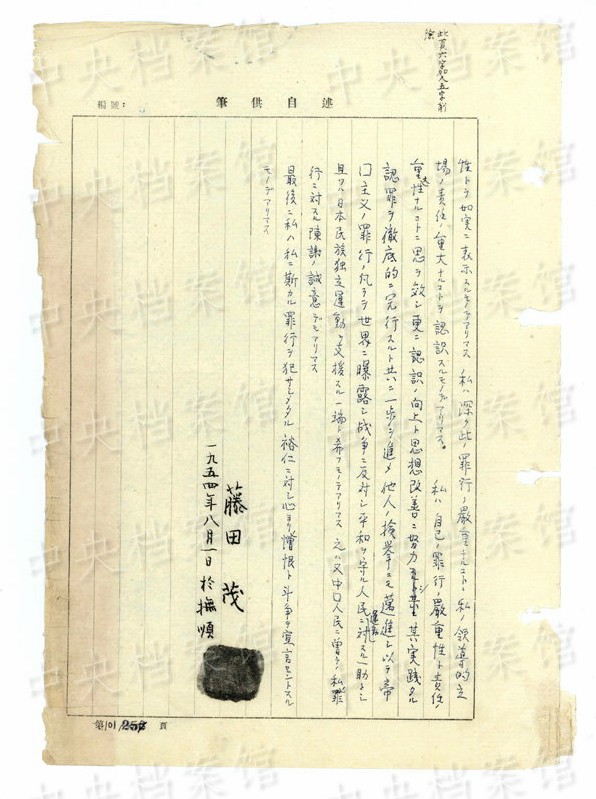 此頁六字加入五字削
除
述自供筆
編號:
性トヲ如実ニ表示スルモノデアリマス 私ハ深ク此ノ罪行ノ嚴重ナルコト、私ノ領導的立
場ノ責任ノ重大ナルコトヲ認識スルモノデアリマス。 私ハ自己ノ罪行ノ嚴重性ト責任ノ
重大性ナルコトニ思ヲ效シ更ニ認識ノ向上ト思想改善ニ努力シ其実践タル
認罪ヲ徹底的ニ完行スルト共ニ一歩ヲ進メ他人ノ検挙ニモ邁進シ以テ帝
口主义ノ罪行ノ凡テヲ世界ニ曝露シ战争ニ反対シ平和ヲ守ル人民運動ニ対スル一助トシ
且ツハ日本民族独立運動ヲ支援スル一端ト希フモノデアリマス 之ハ又中口人民ニ曽テノ私ノ罪
行ニ対スル陳謝ノ誠意デモアリマス
最後ニ私ハ私ニ斯カル罪行ヲ犯サシメタル裕仁ニ対シ心ヨリ憎恨ト斗争ヲ宣言セントスル
モノデアリマス
藤田茂
一九五四年八月一日於撫順
第101/258頁
中央档案馆